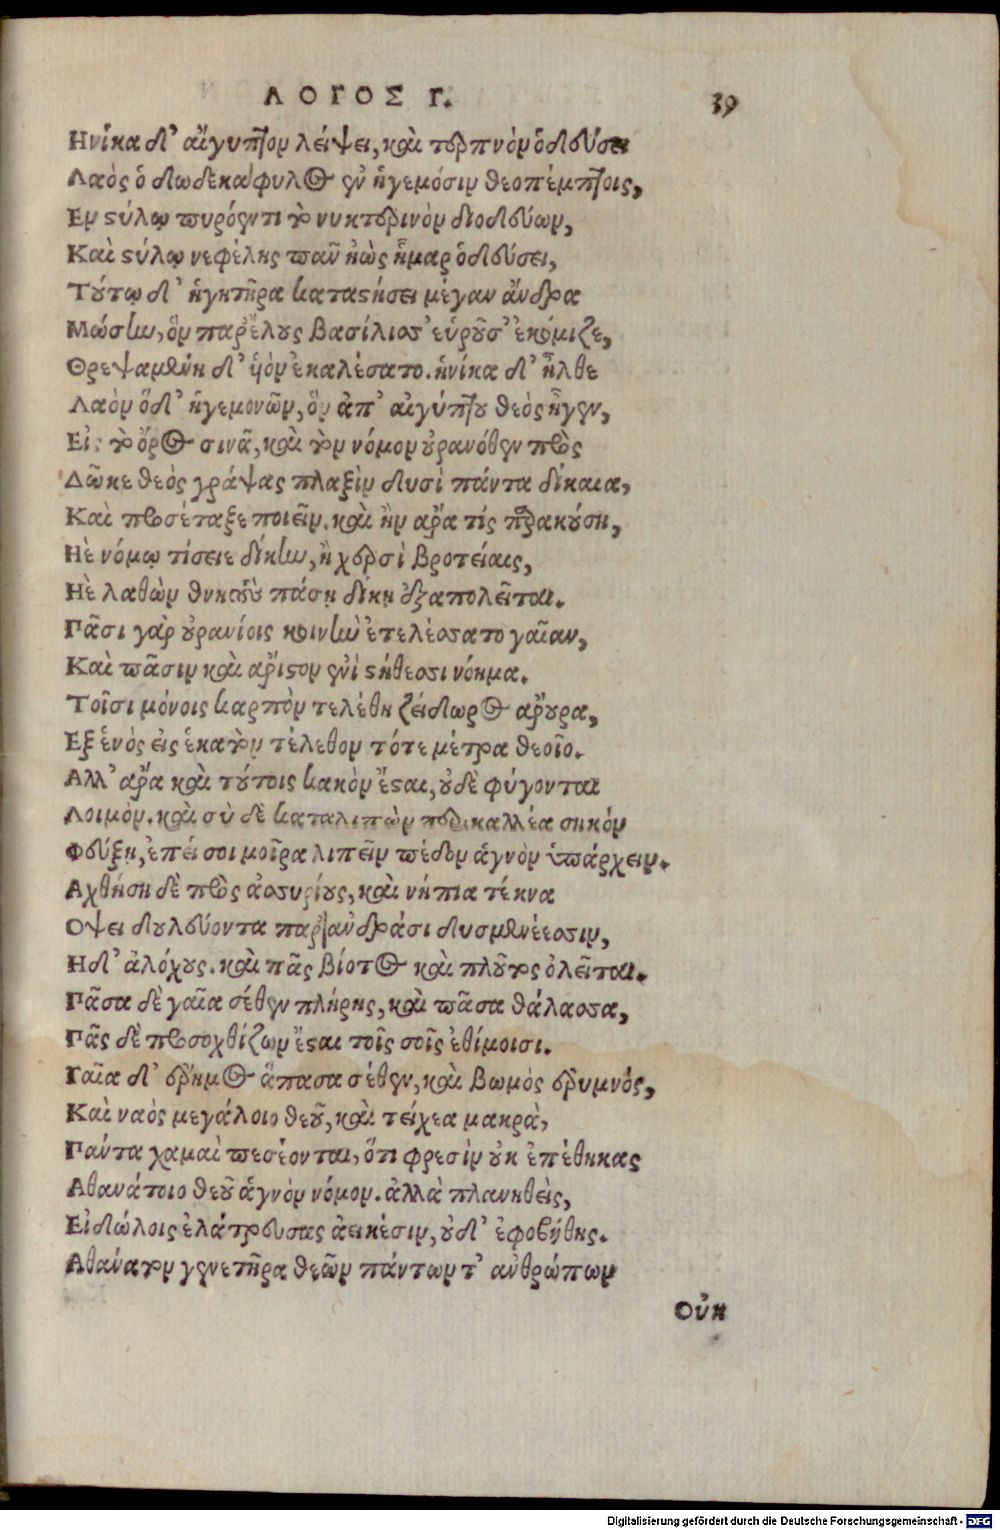 ΛΟΓΟΣ Γ. 39
Ηνίκα δ' αἴγυπτον λείψει, καὶ τερπνὸν ὁδεύσει
Λαὸς ὁ δωδεκάφυλος ἐν ἡγεμόσιν θεοπέμπτοις,
Εν στύλῳ πυρόεντι τὸ νυκτερινὸν διοδεύων,
Καὶ στύλῳ νεφέλης πᾶν ἠὼς ἦμαρ ὁδεύσει,
Τούτῳ δ' ἡγητῆρα καταστήσει μέγαν ἄνδρα
Μώσην, ὃν παρ' ἕλους βασίλισσ' εὑροῦσ' ἐκόμιζε,
Θρεψαμένη δ' υἱὸν ἐκαλέσατο. ἡνίκα δ' ἦλθε
Λαὸν ὅδ' ἡγεμονῶν, ὃν ἀπ' αἰγύπτου θεὸς ἦγεν,
Εἰς τὸ ὄρος σινᾶ, καὶ τὸν νόμον οὐρανόθεν πρὸς
Δῶκε θεὸς γράψας πλαξὶν δυσὶ πάντα δίκαια,
Καὶ προσέταξε ποιεῖν. καὶ ἢν ἄρα τίς παρακούσῃ,
Ηὲ νόμῳ τίσειε δίκην, ἢ χερσὶ βροτείαις,
Ηὲ λαθὼν θνητοὺς πάσῃ δίκῃ ἐξαπολεῖται.
Πᾶσι γὰρ οὐρανίοις κοινὴν ἐτελέσσατο γαῖαν,
Καὶ πᾶσιν καὶ ἄριστον ἐνὶ στήθεσσι νόημα.
Τοῖσι μόνοις καρπὸν τελέθη ζείδωρος ἄρουρα,
Εξ ἑνὸς εἰς ἑκατὸν τέλεθον τότε μέτρα θεοῖο.
Αλλ' ἄρα καὶ τούτοις κακὸν ἔσται, οὐδὲ φύγονται
Λοιμόν. καὶ σὺ δὲ καταλιπὼν περικαλλέα σηκόν
Φεύξῃ, ἐπεί σοι μοῖρα λιπεῖν πέδον ἁγνὸν ὑπάρχειν.
Αχθήσῃ δὲ πρὸς ἀσσυρίους, καὶ νήπια τέκνα
Οψει δουλεύοντα παρ' ἀνδράσι δυσμενέεσσιν,
Ηδ' ἀλόχους. καὶ πᾶς βίοτος καὶ πλοῦτος ὀλεῖται.
Πᾶσα δὲ γαῖα σέθεν πλήρης, καὶ πᾶσα θάλασσα,
Πᾶς δὲ προσοχθίζων ἔσται τοῖς σοῖς ἐθίμοισι.
Γαῖα δ' ἔρημος ἅπασα σέθεν, καὶ βωμὸς ἐρυμνὸς,
Καὶ ναὸς μεγάλοιο θεοῦ, καὶ τείχεα μακρὰ,
Πάντα χαμαὶ πεσέονται, ὅτι φρεσὶν οὐκ ἐπέθηκας
Αθανάτοιο θεοῦ ἁγνὸν νόμον. ἀλλὰ πλανηθεὶς,
Εἰδώλοις ἐλάτρευσας ἀεικέσιν, οὐδ' ἐφοβήθης.
Αθάνατον γενετῆρα θεῶν πάντων τ' ἀνθρώπων
Οὐκ
Digitalisierung gefördert durch die Deutsche Forschungsgemeinschaft - DFG